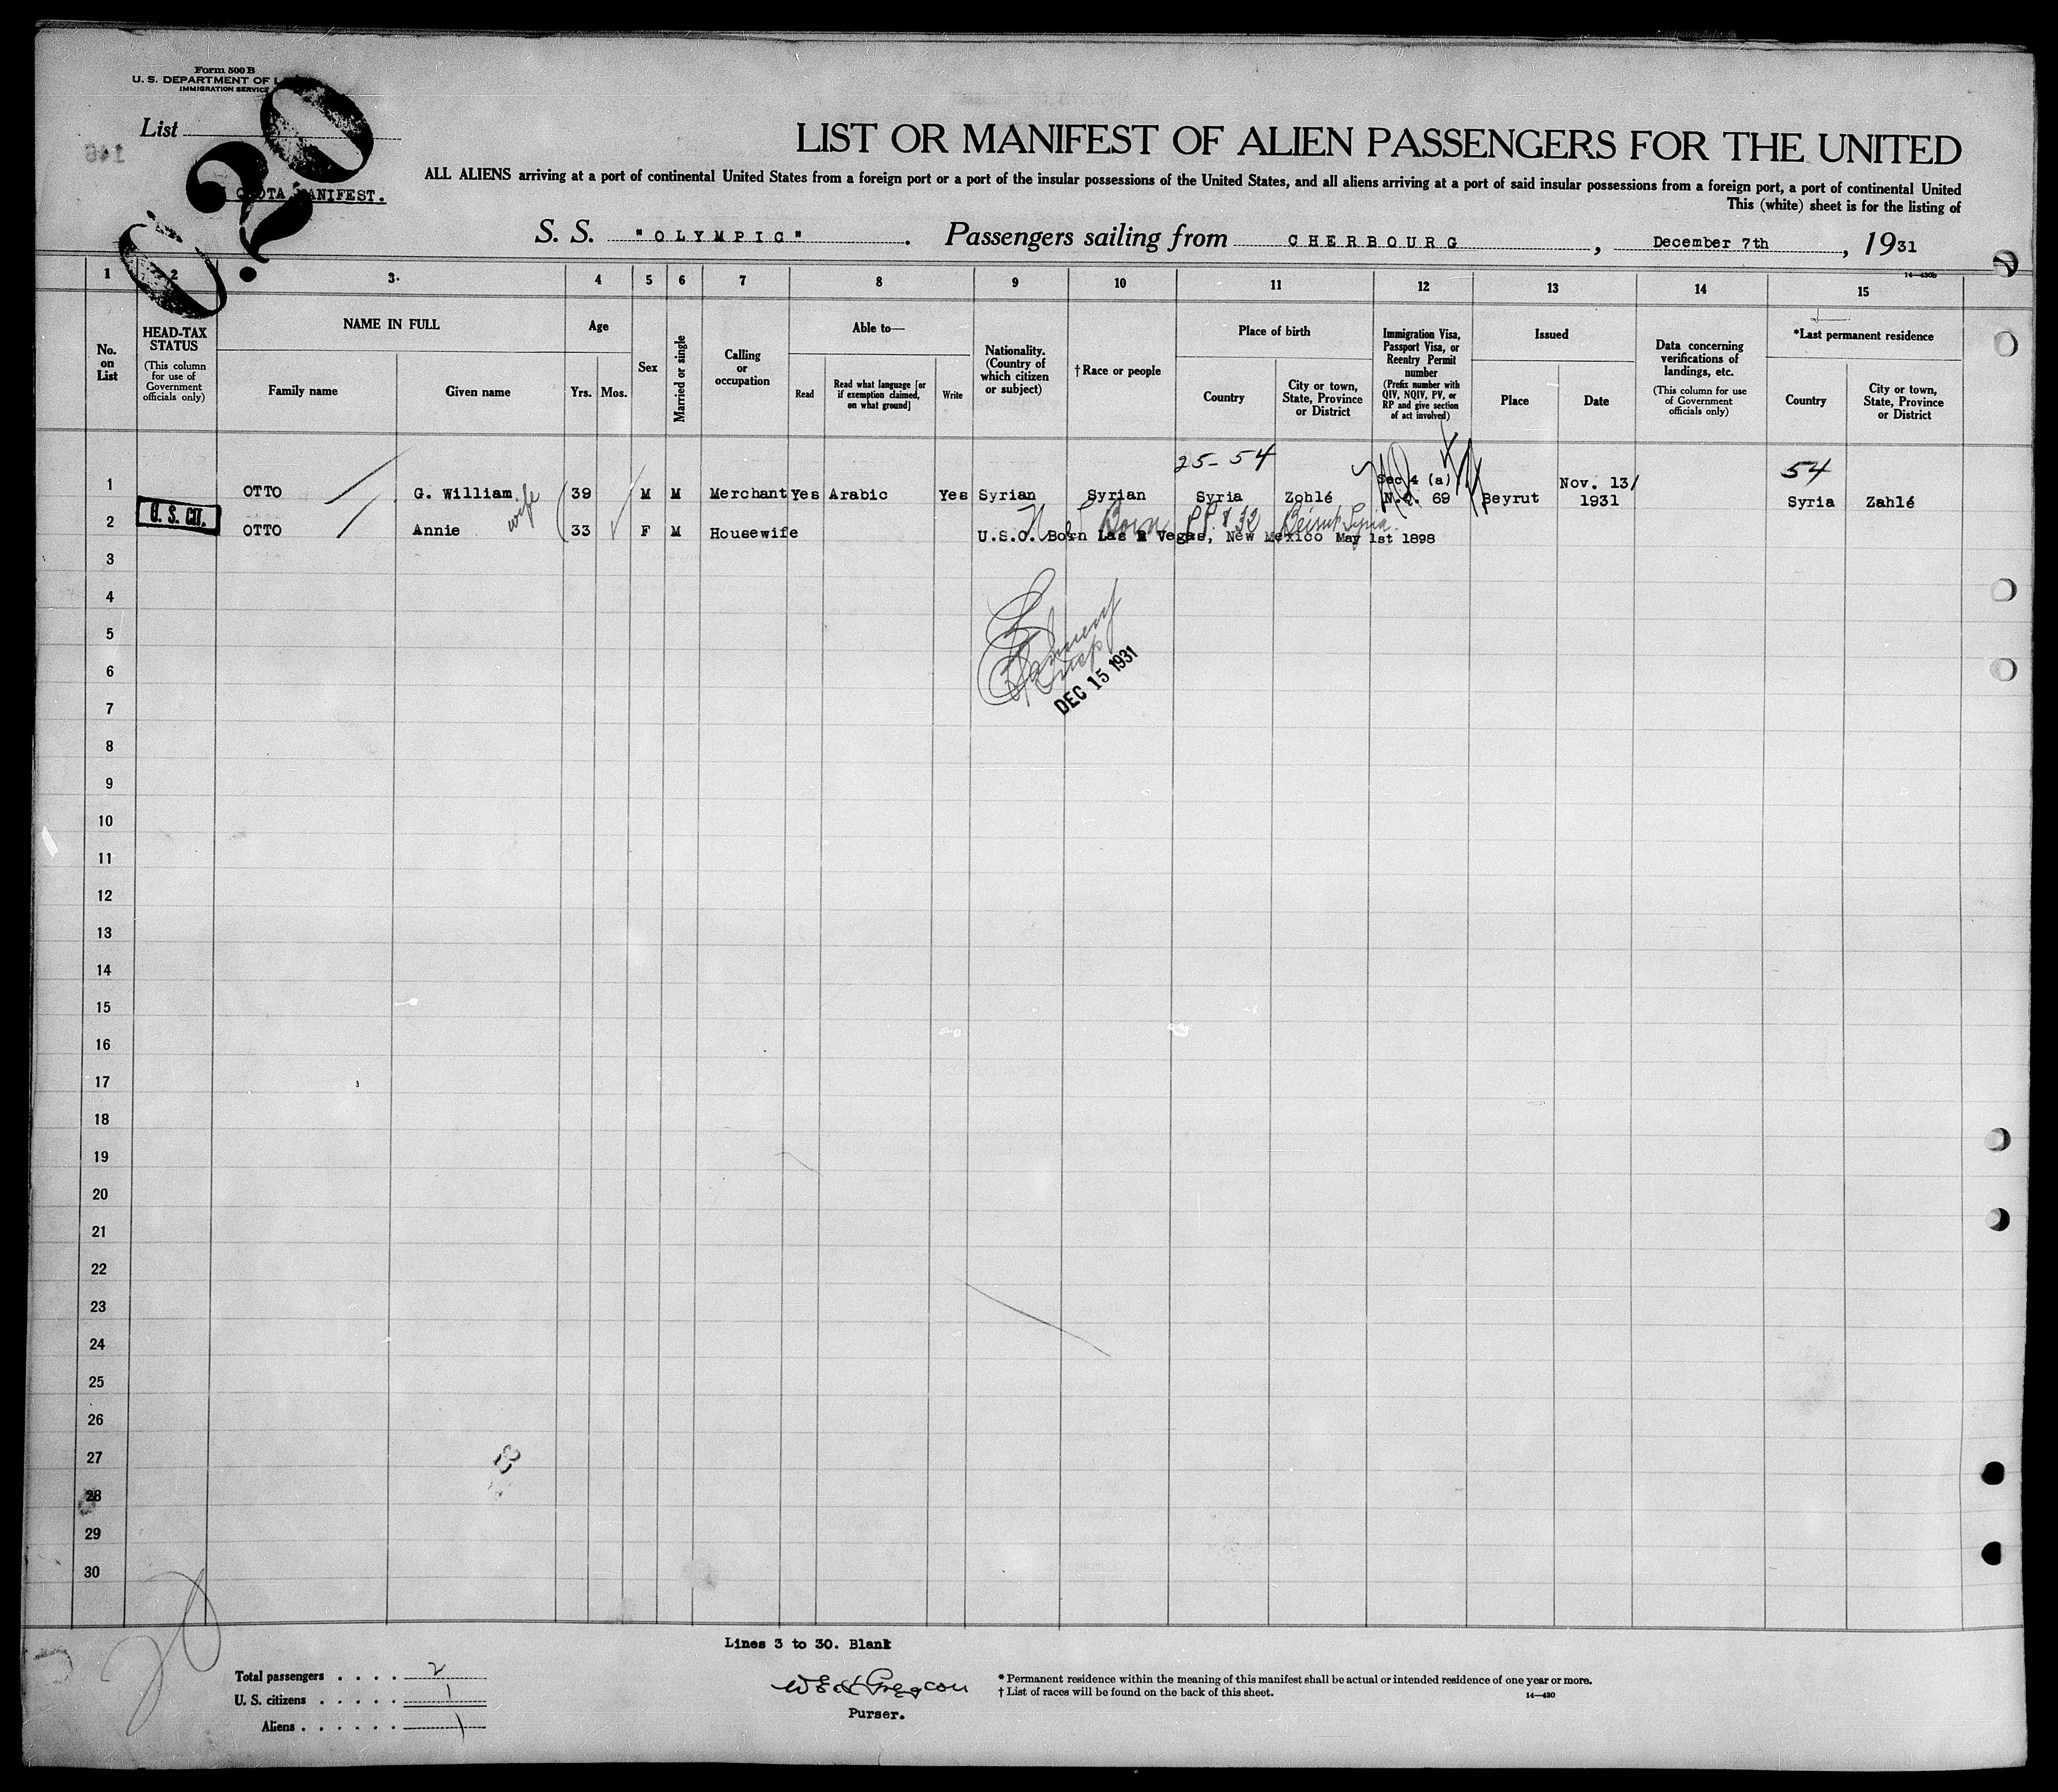 Form 500 B
U. S. DEPARTMENT OF
IMMIGRATION SERVICE
List
146
0.20
QUOTA MANIFEST.
LIST OR MANIFEST OF ALIEN PASSENGERS FOR THE UNITED
ALL ALIENS arriving at a port of continental United States from a foreign port or a port of the insular possessions of the United States, and all aliens arriving at a port of said insular possessions from a foreign port, a port of continental United
This (white) sheet is for the listing of
S. S. "OLYMPIC". Passengers sailing from CHERBOURG, December 7th, 1931
14—430b
1 2 3 4 5 6 7 8 9 10 11 12 13 14 15
No. on List
HEAD-TAX STATUS
(This column for use of Government officials only)
NAME IN FULL
Family name Given name
Age
Yrs. Mos.
Sex
Married or single
Calling or occupation
Able to—
Read
Read what language [or if exemption claimed, on what ground]
Write
Nationality. (Country of which citizen or subject)
† Race or people
Place of birth
Country
City or town, State, Province or District
Immigration Visa, Passport Visa, or Reentry Permit number
(Prefix number with QIV, NQIV, PV, or RP and give section of act involved)
Issued
Place Date
Data concerning verifications of landings, etc.
(This column for use of Government officials only)
*Last permanent residence
Country
City or town, State, Province or District
25-54 54
1 OTTO G. William 39 M M Merchant Yes Arabic Yes Syrian Syrian Syria Zohlé Sec 4 (a) N.Q. 69 Beyrut Nov. 13/ 1931 Syria Zahlé
wife
U. S. CIT.
Born Beirut Syria
2 OTTO Annie 33 F M Housewife U.S.C. Born Las Vegas, New Mexico May 1st 1898
3
4
5
6
DEC 15 1931
7
8
9
10
11
12
13
14
15
16
17
18
19
20
21
22
23
24
25
26
27
28
29
30
Lines 3 to 30. Blank
Total passengers . . . . 2
U. S. citizens . . . . . 1
Aliens . . . . . . 1
Purser.
* Permanent residence within the meaning of this manifest shall be actual or intended residence of one year or more.
† List of races will be found on the back of this sheet.
14—430